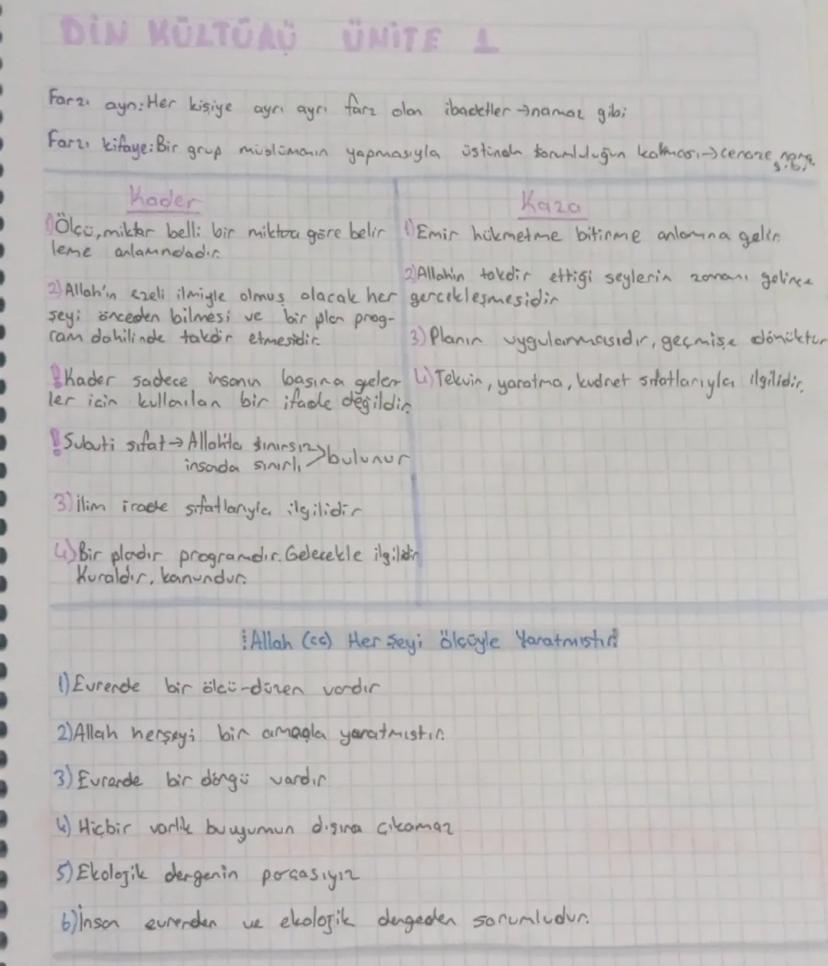 DİN KÜLTÜRÜ ÜNİTE 1
Farzı ayn: Her kişiye ayrı ayrı farz olan ibadetler → namaz gibi
Farzı kifaye: Bir grup müslümanın yapmasıyla üstinden sorumluluğun kalması → cenaze namazı
Kader
1) Ölçü, miktar belli bir miktara göre belir
leme anlamındadır.
2) Allah'ın ezeli ilmiyle olmuş olacak her
şeyi önceden bilmesi ve bir plan prog-
ram dahilinde takdir etmesidir.
! Kader sadece insanın başına gelen
ler için kullanılan bir ifade değildir.
! Subuti sıfat → Allahta sınırsız > bulunur
insanda sınırlı
3) ilim irade sıfatlarıyla ilgilidir
4) Bir plandır programdır. Gelecekle ilgilidir
Kuraldır, kanundur.
Kaza
1) Emir hükmetme bitirme anlamına gelir
2) Allahın takdir ettiği şeylerin zamanı gelince
gerçekleşmesidir
3) Planın uygulanmasıdır, geçmişe dönüktür
4) Tekvin, yaratma, kudret sıfatlarıyla ilgilidir.
! Allah (cc) Her şeyi ölçüyle Yaratmıştır!
1) Evrende bir ölçü-düzen vardır
2) Allah herşeyi bir amaçla yaratmıştır.
3) Evrende bir döngü vardır
4) Hiçbir varlık bu uyumun dışına çıkamaz
5) Ekolojik dengenin parçasıyız
6) İnsan evrenden ve ekolojik dengeden sorumludur.